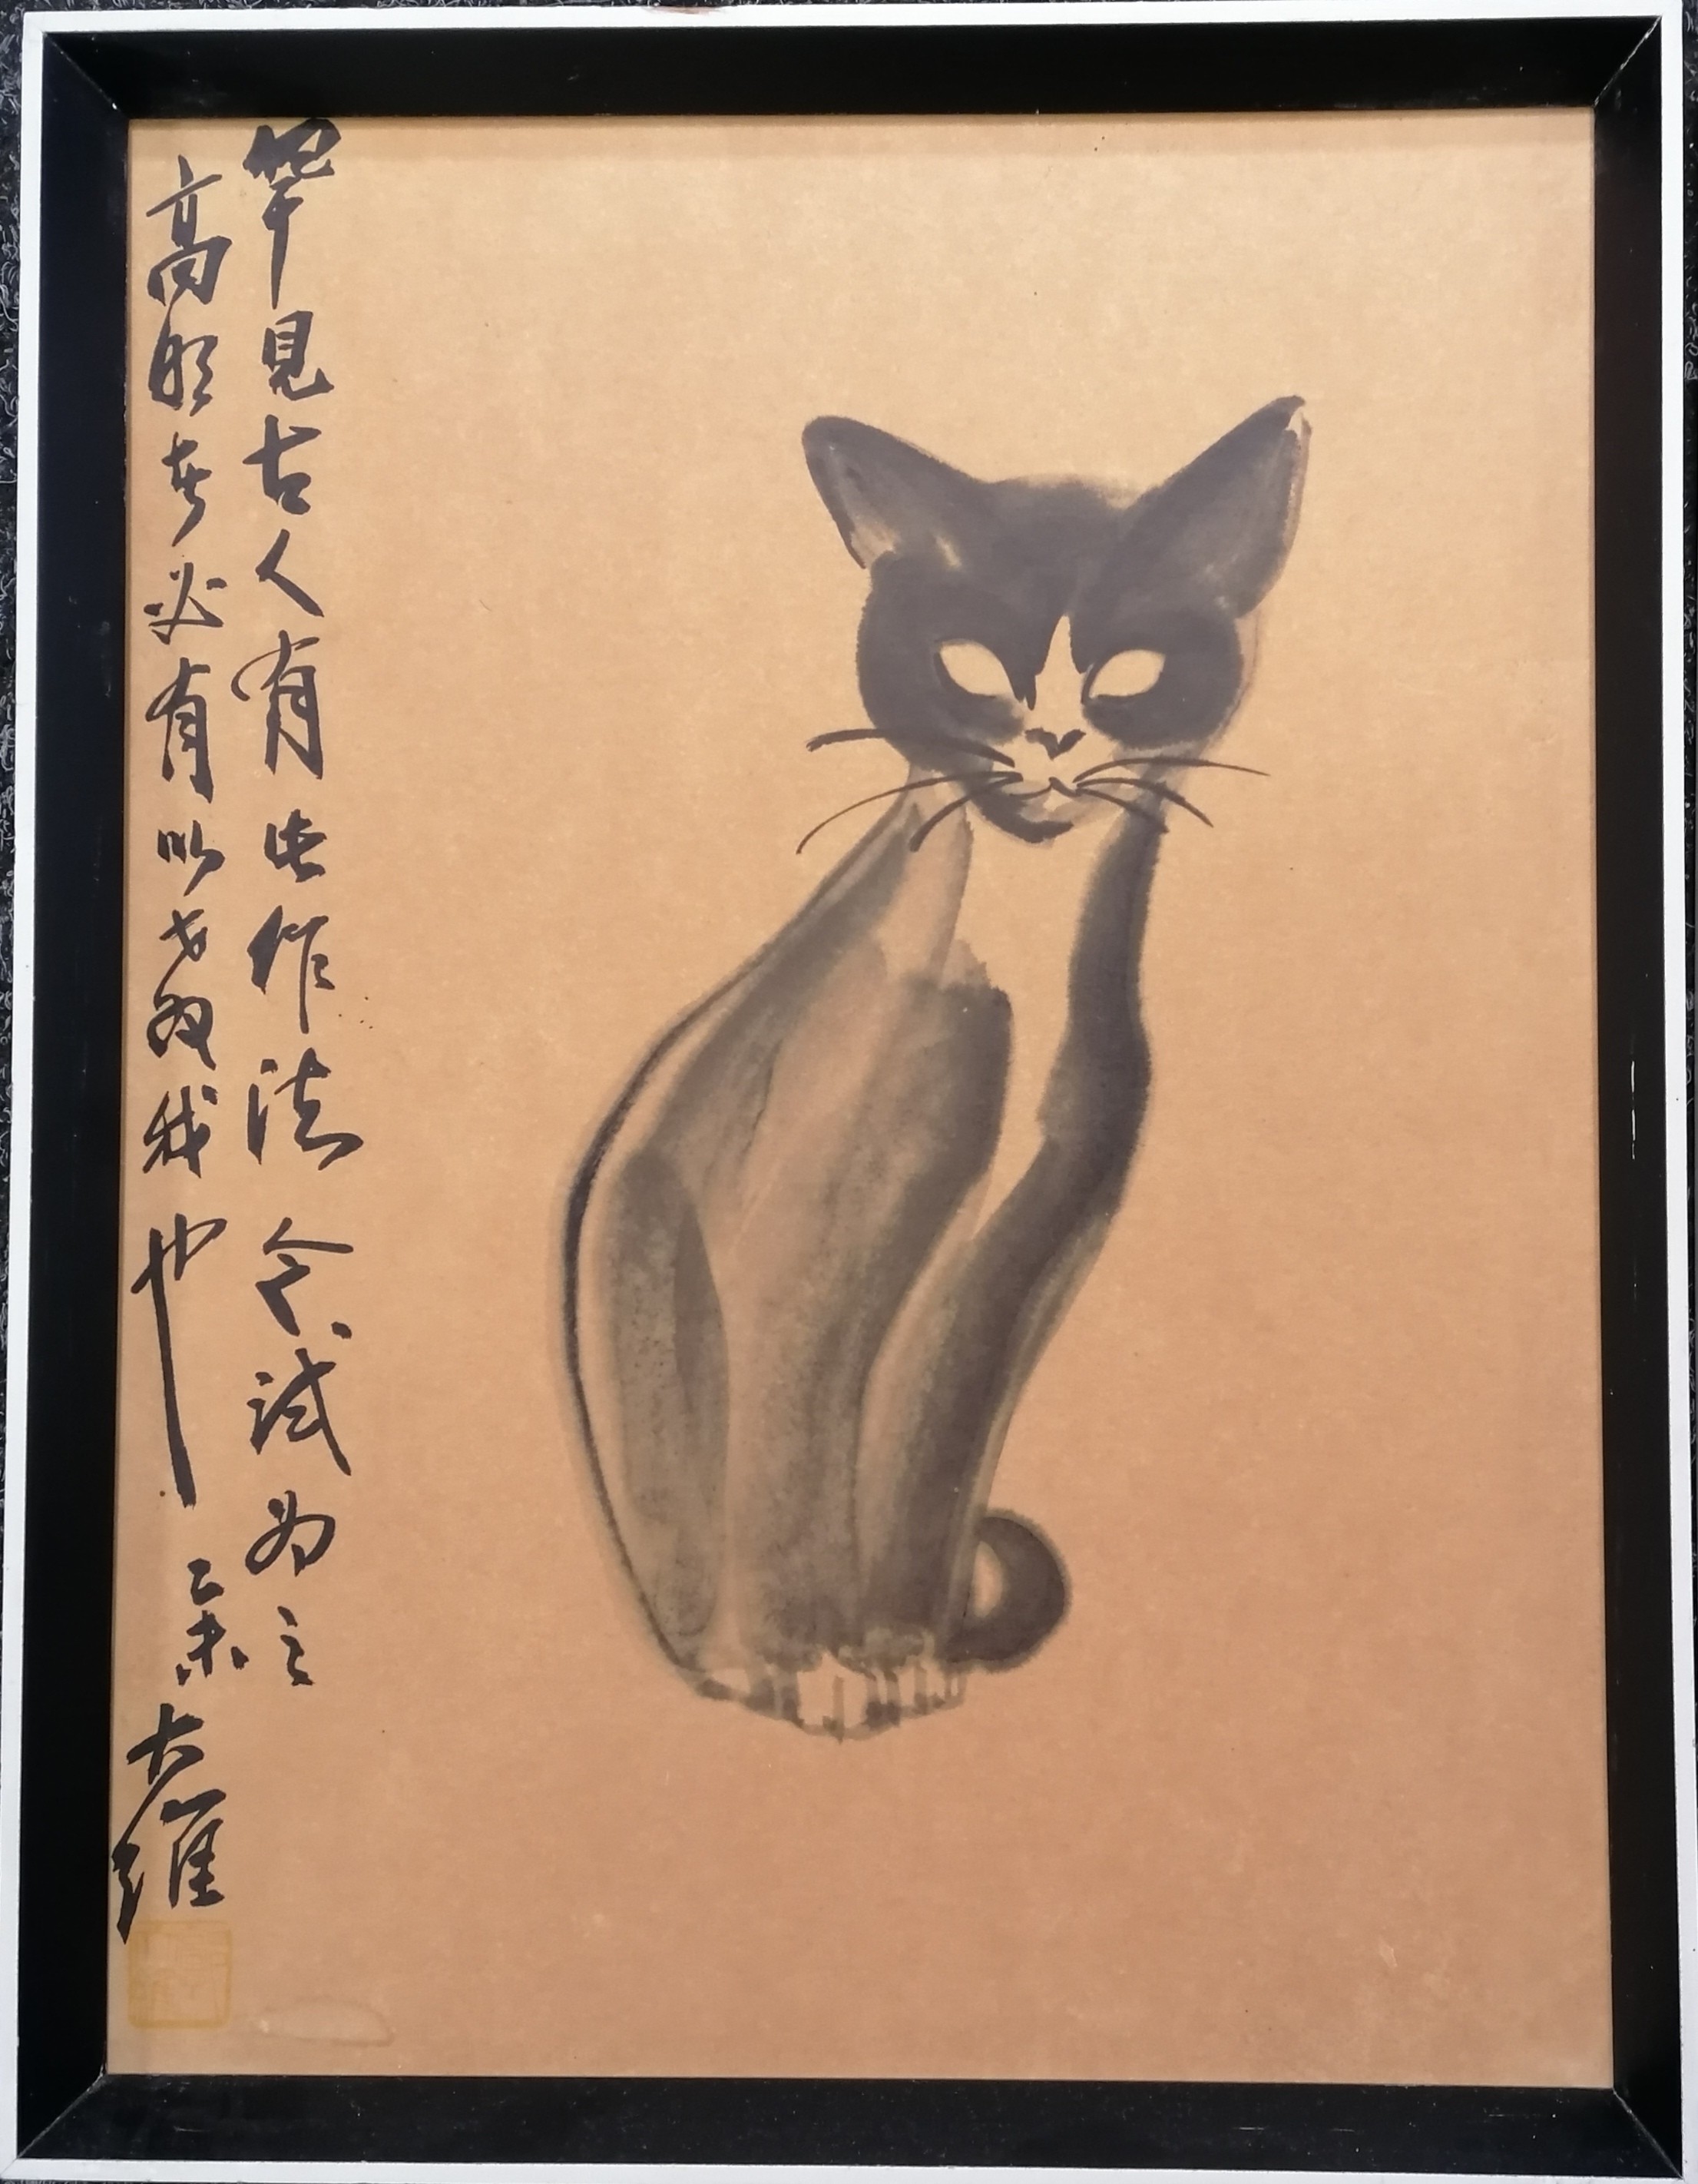 罕見古人有此作法今試为之
高明者必有以教我也
乙未大維